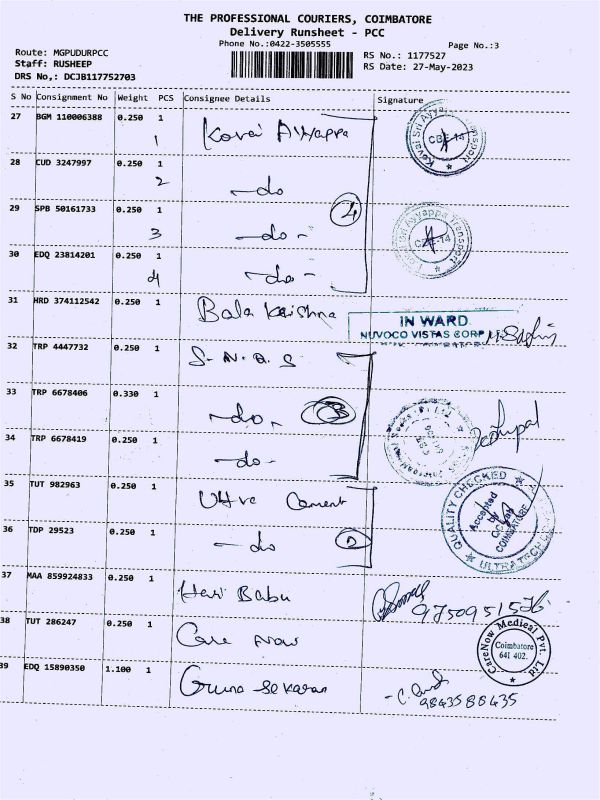 THE PROFESSIONAL COURIERS, COIMBATORE
Delivery Runsheet - PCC
Phone No.:0422-3505555
Page No.:3
Route: MGPUDURPCC
Staff: RUSHEEP
DRS No,: DCJB117752703
RS No.: 1177527
RS Date: 27-May-2023
S No Consignment No Weight PCS Consignee Details Signature
27 BGM 110006388 0.250 1 Kovai Ayyappa
1
28 CUD 3247997 0.250 1
2 -do
29 SPB 50161733 0.250 1 4
3 -do-
30 EDQ 23814201 0.250 1
4 -do-
31 HRD 374112542 0.250 1 Bala Krishna
IN WARD
NUVOCO VISTAS CORP
32 TRP 4447732 0.250 1 S-N.Q.S
33 TRP 6678406 0.330 1 -do- 3
34 TRP 6678419 0.250 1 -do-
35 TUT 982963 0.250 1 Ultra Cement
QUALITY CHECKED
Accepted
COIMBATORE
ULTRATECH
36 TDP 29523 0.250 1 -do 2
37 MAA 859924833 0.250 1 Hari Babu
38 TUT 286247 0.250 1 Care Now
CareNow Medical Pvt. Ltd
Coimbatore
641 402.
39 EDQ 15890350 1.100 1 Guna Sekaran
9843588435